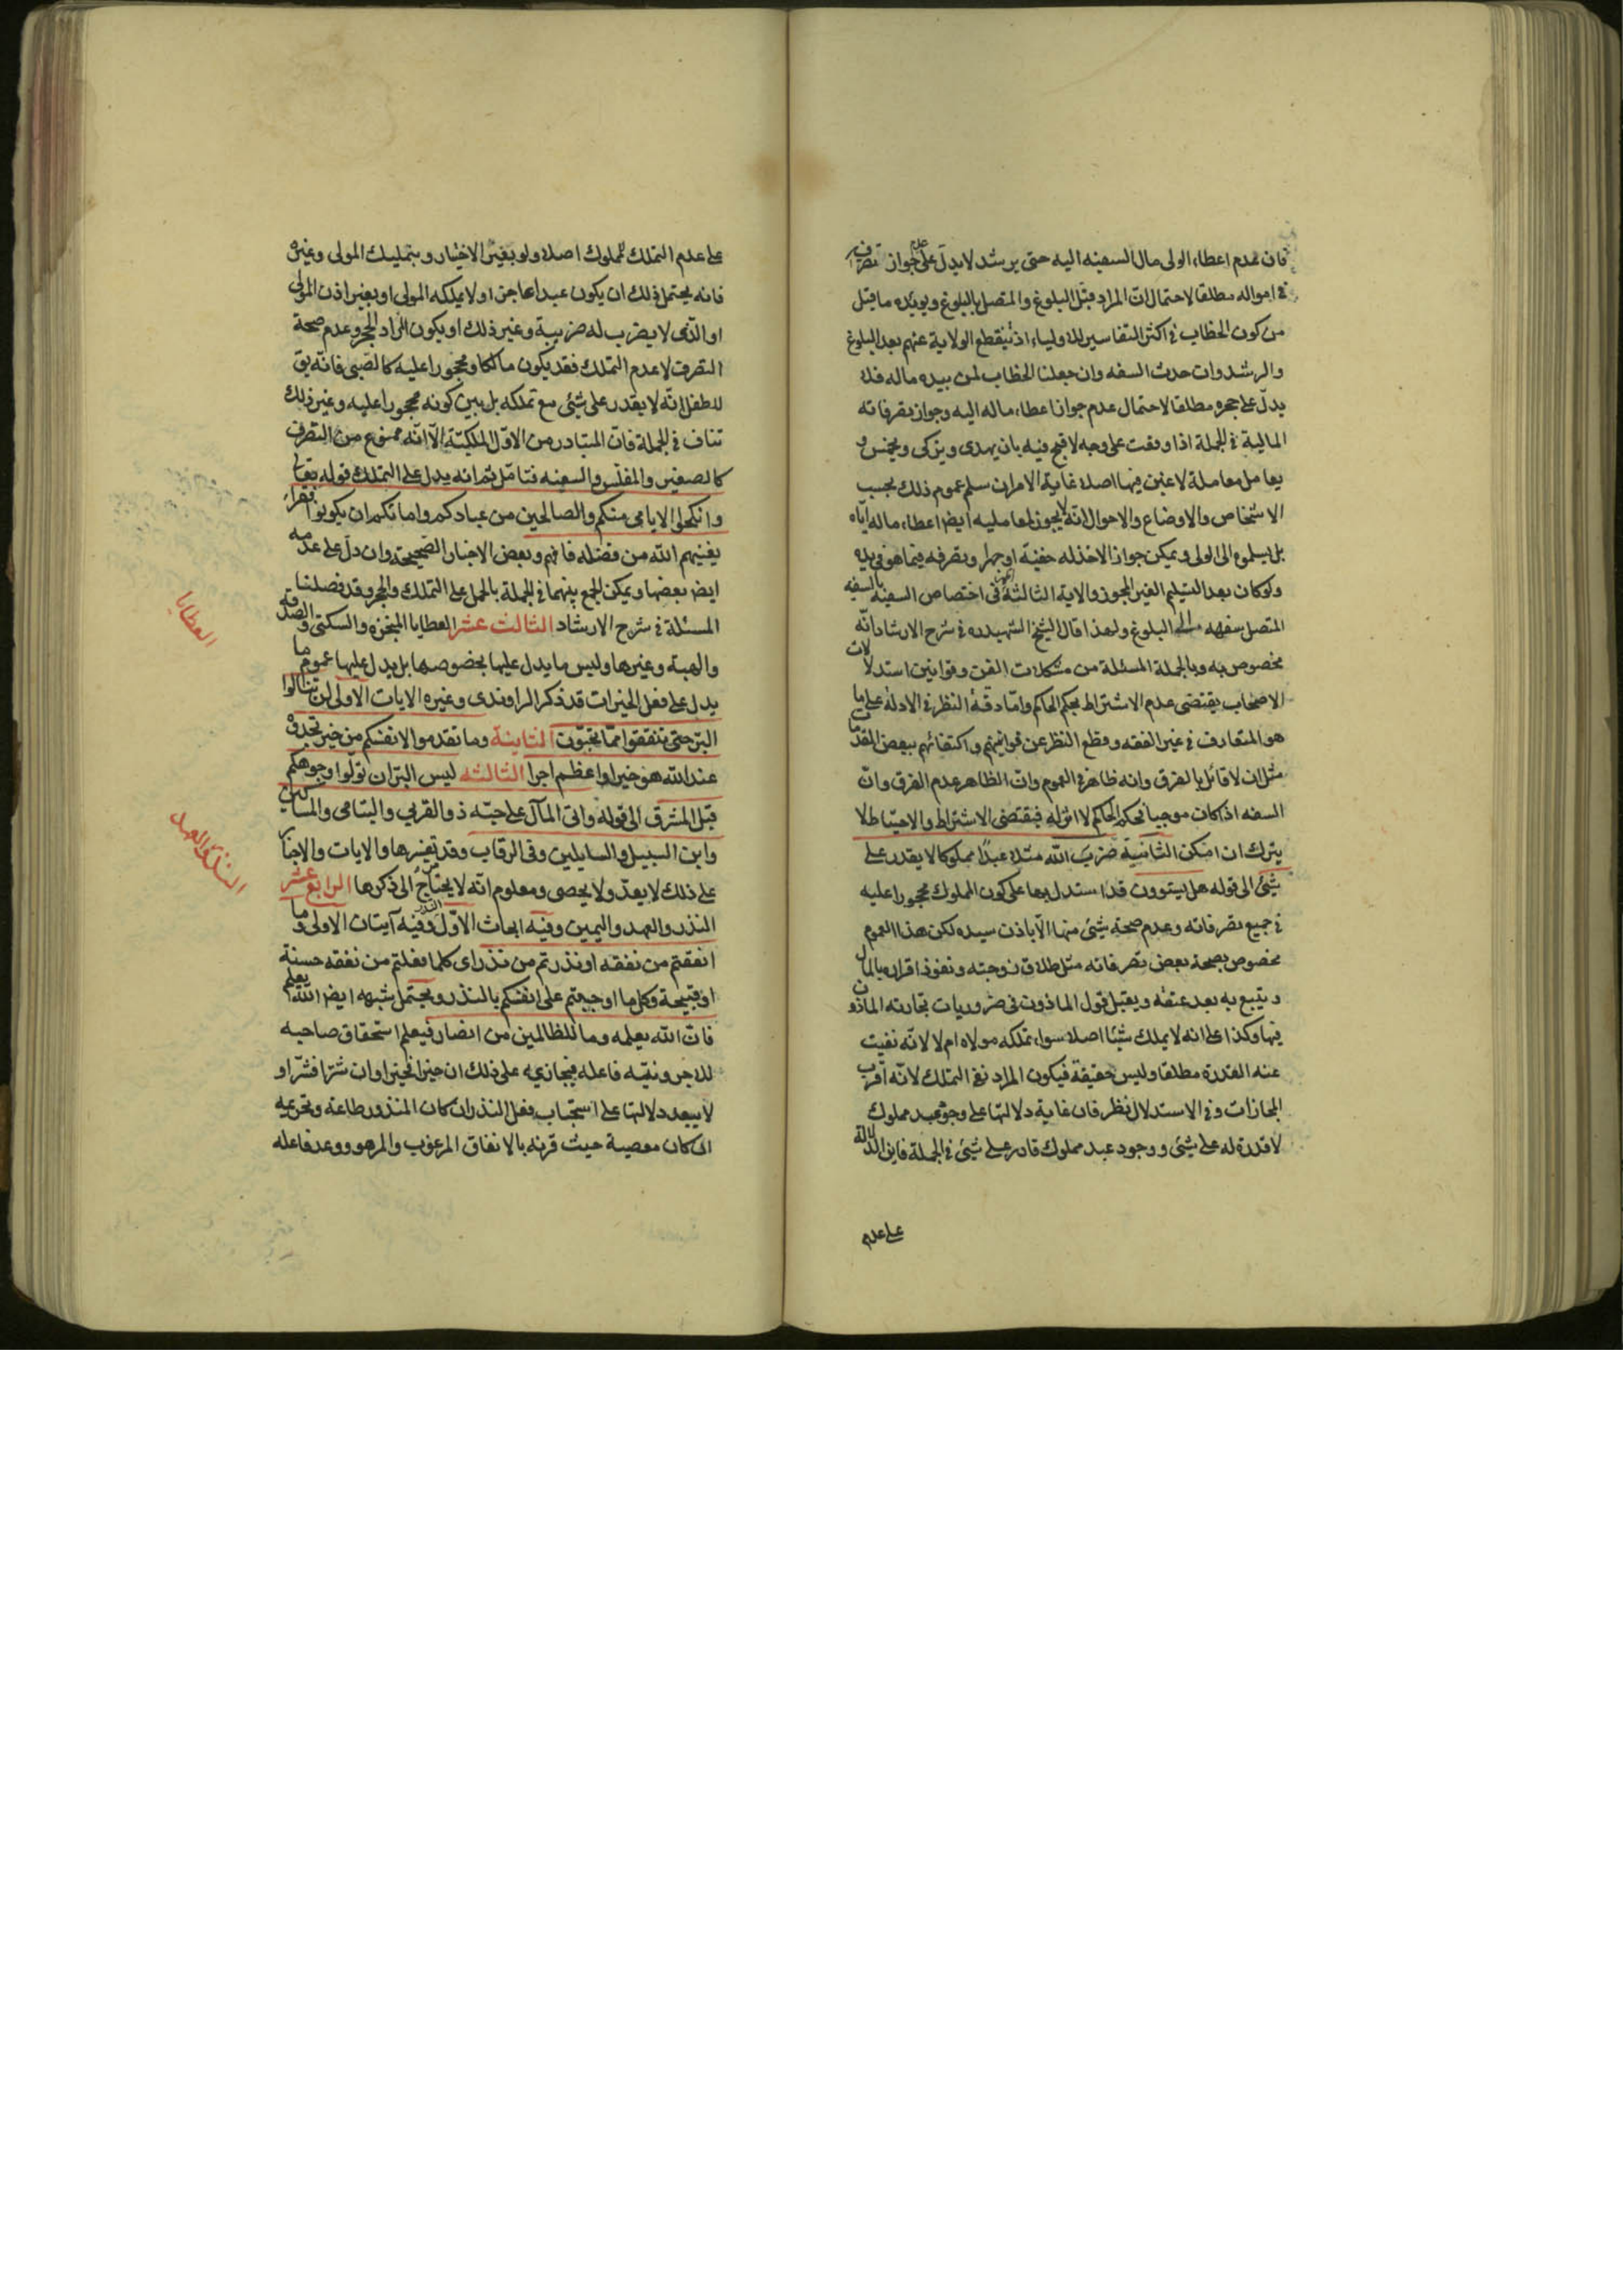 فان عدم اعطاء الولى مال السفيه اليه حتى يرشد لا يدل على عدم جواز تصرف
فى امواله مطلقا لاحتمال ان المراد قبل البلوغ والمتصل بالبلوغ ويؤيده ما قبل
من كون الخطاب فى اكثر التفاسير للاولياء اذ ينقطع الولاية عنهم بعد البلوغ
والرشد وان حدث السفه وان جعلنا الخطاب لمن بيده ماله فلا
يدل على حجره مطلقا لاحتمال عدم جواز اعطاء ماله اليه وجواز تصرفاته
المالية فى الجملة اذا وقعت على وجه لا قبح فيه بان يهدى ويزكى ويخمس و
يعامل معاملة لا غبن فيها اصلا غاية الامر ان سلم عموم ذلك بحسب
الاشخاص والاوضاع والاحوال انه لا يجوز لمعامليه ايض اعطاء ماله اياه
بل يسلموه الى الولى ويمكن جواز الاخذ له خفية او جهرا وتصرفه فيما هو فى يده
ولو كان بعد التسليم الغير المجوز والاية الثالثة فى اختصاص السفيه بالسفه
المتصل سفهه الى البلوغ ولهذا قال الشيخ الشهيد ره فى شرح الارشاد انه
مخصوص به وبالجملة المسئلة من مشكلات الفن وقوانين استدلالات
الاصحاب يقتضى عدم الاشتراط بحكم الحاكم واما دقة النظر فى الادلة على ما
هو المتعارف فى غير الفقه وقطع النظر عن قوانينهم واكتفائهم ببعض المقدمات
مثل ان لا قائل بالفرق وانه ظاهر فى العموم وان الظاهر عدم الفرق وان
السفه اذا كان موجبا فحكم الحاكم لا اثر له فيقتضى الاشتراط والاحتياط لا
يترك ان امكن الثانية ضرب الله مثلا عبدا مملوكا لا يقدر على
شئ الى قوله هل يستوون قد استدل بها على كون المملوك محجورا عليه
فى جميع تصرفاته وعدم صحة شئ منها الا باذن سيده لكن هذا العموم
مخصوص بصحة بعض تصرفاته مثل طلاق زوجته ونفوذ اقراره بالمال
ويتبع به بعد عتقه ويقبل قول الماذون فى ضروريات تجارته الماذون
فيها وكذا على انه لا يملك شيئا اصلا سواء تملكه مولاه ام لا لانه نفيت
عنه القدرة مطلقا وليس حقيقة فيكون المراد نفى التملك لانه اقرب
المجازات وفى الاستدلال نظر فان غاية دلالتها على وجود عبد مملوك
لا قدرة له على شئ ووجود عبد مملوك قادر على شئ فى الجملة فاين الدلالة
على عدم
على عدم التملك للمملوك اصلا ولو بغير الاختيار وبتمليك المولى وغيره
فانه يحتمل ذلك ان يكون عبدا عاجزا او لا يملكه المولى او بغير اذن المولى
او الذى لا يضرب له ضريبة وغير ذلك او يكون المراد الحجر وعدم صحة
التصرف لا عدم التملك فقد يكون مالكا ومحجورا عليه كالصبى فانه يق
للطفل انه لا يقدر على شئ مع تملكه بل بين كونه محجورا عليه وغير ذلك
تناف فى الجملة فان المتبادر من الاول الملكية الا انه ممنوع من التصرف
كالصغير والمفلس والسفيه فتامل ثم انه يدل على التملك قوله تعالى
وانكحوا الايامى منكم والصالحين من عبادكم وامائكم ان يكونوا فقراء
يغنيهم الله من فضله فافهم وبعض الاخبار الصحيحة وان دل على عدمه
ايض بعضها ويمكن الجمع بينهما فى الجملة بالحمل على التملك والحجر وقد فصلنا
المسئلة فى شرح الارشاد الثالث عشر العطايا المنجزه والسكنى والصدقة
والهبة وغيرها وليس ما يدل عليها بخصوصها بل يدل عليها عموم ما
يدل على فعل الخيرات قد ذكر الراوندى وغيره الايات الاولى لن تنالوا
البر حتى تنفقوا مما تحبون الثانية وما تقدموا لانفسكم من خير تجدوه
عند الله هو خيرا واعظم اجرا الثالثه ليس البر ان تولوا وجوهكم
قبل المشرق الى قوله واتى المال على حبه ذو القربى واليتامى والمساكين
وابن السبيل والسايلين وفى الرقاب وقد تفسيرها والايات والاخبار
على ذلك لا يعد ولا يحصى ومعلوم انه لا يحتاج الى ذكرها الرابع عشر
النذر والعهد واليمين وفيه ابحاث الاول النذر وفيه آيتان الاولى وما
انفقتم من نفقه او نذرتم من نذر اى كلما فعلتم من نفقه حسنة
او قبيحة وكل ما اوجبتم على انفسكم بالنذر ويحتمل شبهه ايض الله يعلم
فان الله يعلمه وما للظالمين من انصار فيعلم استحقاق صاحبه
للاجر ونيته فاعله فيجازيه على ذلك ان خيرا فخيرا وان شرا فشرا و
لا يبعد دلالتها على استحباب فعل النذر ان كان المنذور طاعة وتحريمه
ان كان معصية حيث قرنه بالانفاق المرغوب والمرهو ووعد فاعله
العطايا
النذر والعهد